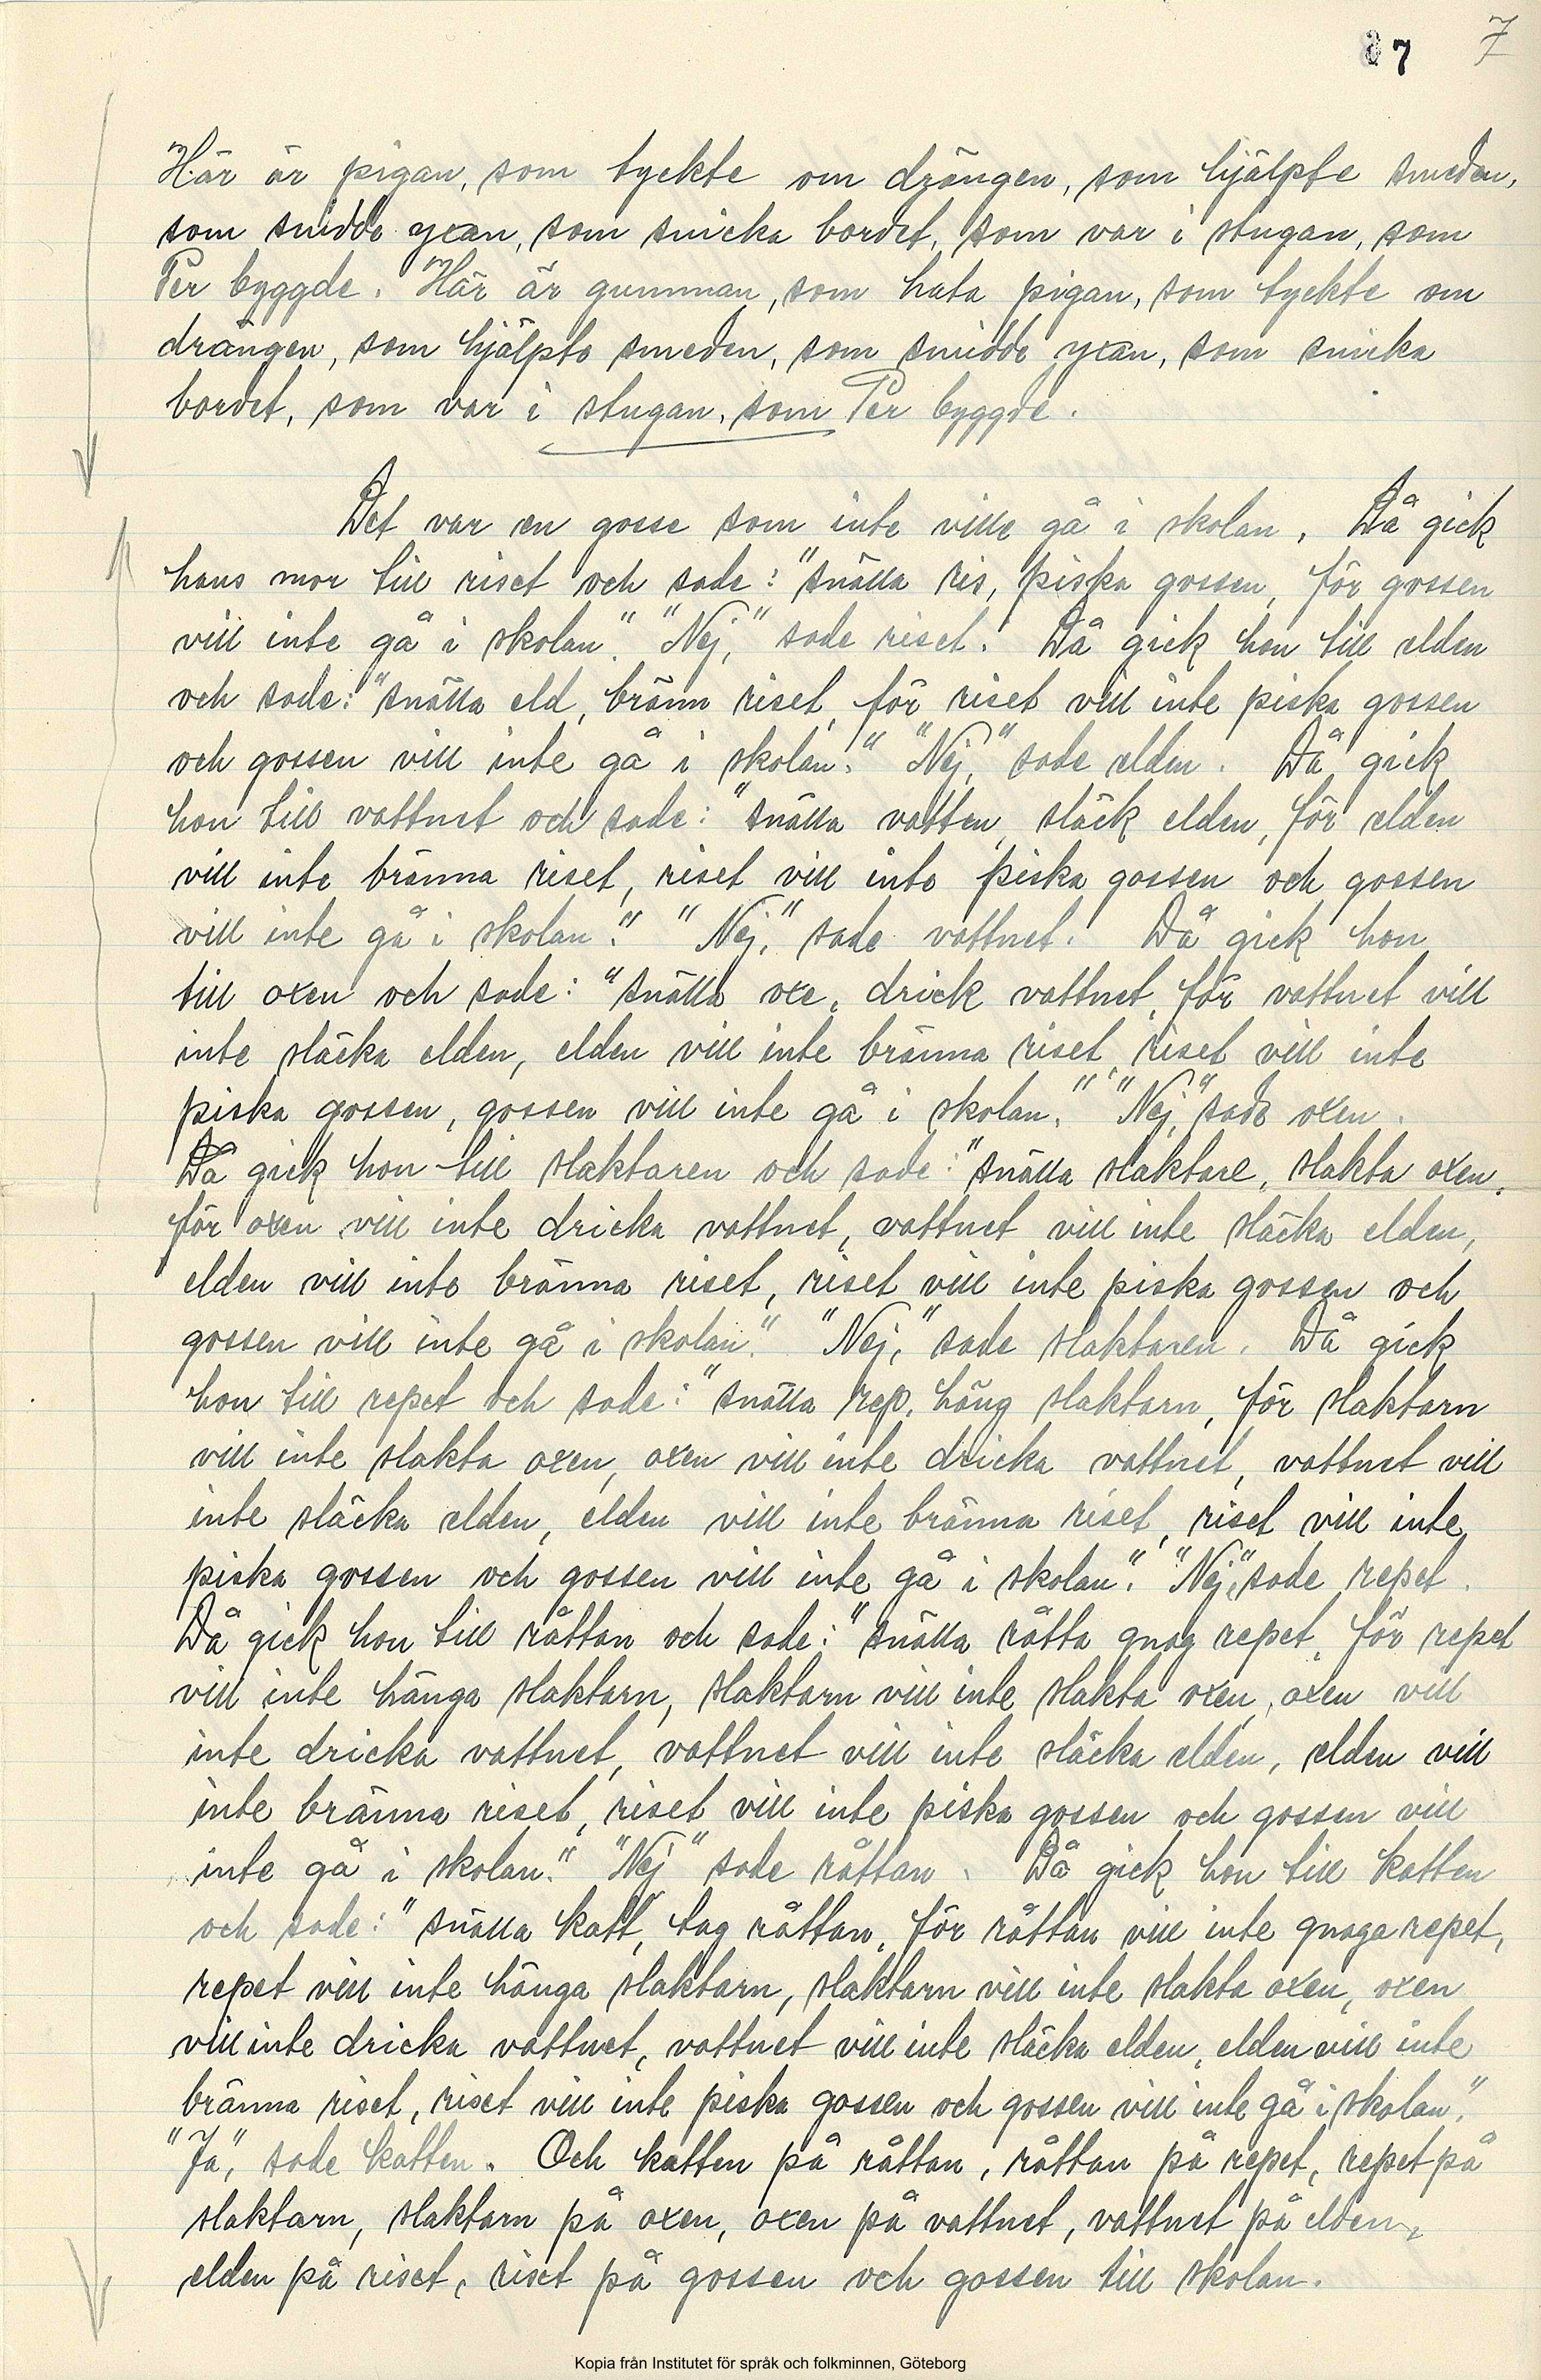 87 7
Här är pigan, som tyckte om drängen, som hjälpte smeden,
som smidde yxan, som snicka bordet, som var i stugan, som
Per byggde. Här är gumman, som hata pigan, som tyckte om
drängen, som hjälpte smeden, som smidde yxan, som snicka
bordet, som var i stugan, som Per byggde.
Det var en gosse som inte ville gå i skolan. Då gick
hans mor till riset och sade: "snälla ris, piska gossen, för gossen
vill inte gå i skolan." "Nej," sade riset. Då gick hon till elden
och sade: "snälla eld, bränn riset, för riset vill inte piska gossen
och gossen vill inte gå i skolan." "Nej," sade elden. Då gick
hon till vattnet och sade: "snälla vatten, släck elden, för elden
vill inte bränna riset, riset vill inte piska gossen och gossen
vill inte gå i skolan." "Nej," sade vattnet. Då gick hon
till oxen och sade: "snälla oxe, drick vattnet, för vattnet vill
inte släcka elden, elden vill inte bränna riset, riset vill inte
piska gossen, gossen vill inte gå i skolan." "Nej," sade oxen.
Då gick hon till slaktaren och sade: "snälla slaktare, slakta oxen,
för oxen vill inte dricka vattnet, vattnet vill inte släcka elden,
elden vill inte bränna riset, riset vill inte piska gossen och
gossen vill inte gå i skolan." "Nej," sade slaktaren. Då gick
hon till repet och sade: "snälla rep, häng slaktarn, för slaktarn
vill inte slakta oxen, oxen vill inte dricka vattnet, vattnet vill
inte släcka elden, elden vill inte bränna riset, riset vill inte
piska gossen och gossen vill inte gå i skolan". "Nej," sade repet.
Då gick hon till råttan och sade: "snälla råtta gnag repet, för repet
vill inte hänga slaktarn, slaktarn vill inte slakta oxen, oxen vill
inte dricka vattnet, vattnet vill inte släcka elden, elden vill
inte bränna riset, riset vill inte piska gossen och gossen vill
inte gå i skolan." "Nej" sade råttan. Då gick hon till katten
och sade: "snälla katt, tag råttan, för råttan vill inte gnaga repet,
repet vill inte hänga slaktarn, slaktarn vill inte slakta oxen, oxen
vill inte dricka vattnet, vattnet vill inte släcka elden, elden vill inte
bränna riset, riset vill inte piska gossen och gossen vill inte gå i skolan".
"Ja", sade katten. Och katten på råttan, råttan på repet, repet på
slaktarn, slaktarn på oxen, oxen på vattnet, vattnet på elden,
elden på riset, riset på gossen och gossen till skolan.
Kopia från Institutet för språk och folkminnen, Göteborg